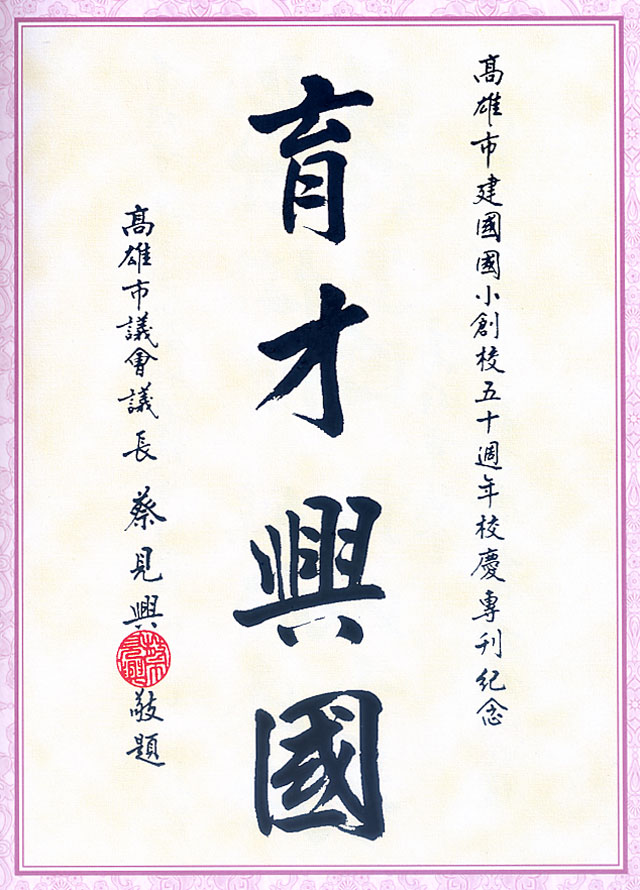 高雄市建國國小創校五十週年校慶專刊紀念
育才興國
高雄市議會議長 蔡見興 敬題